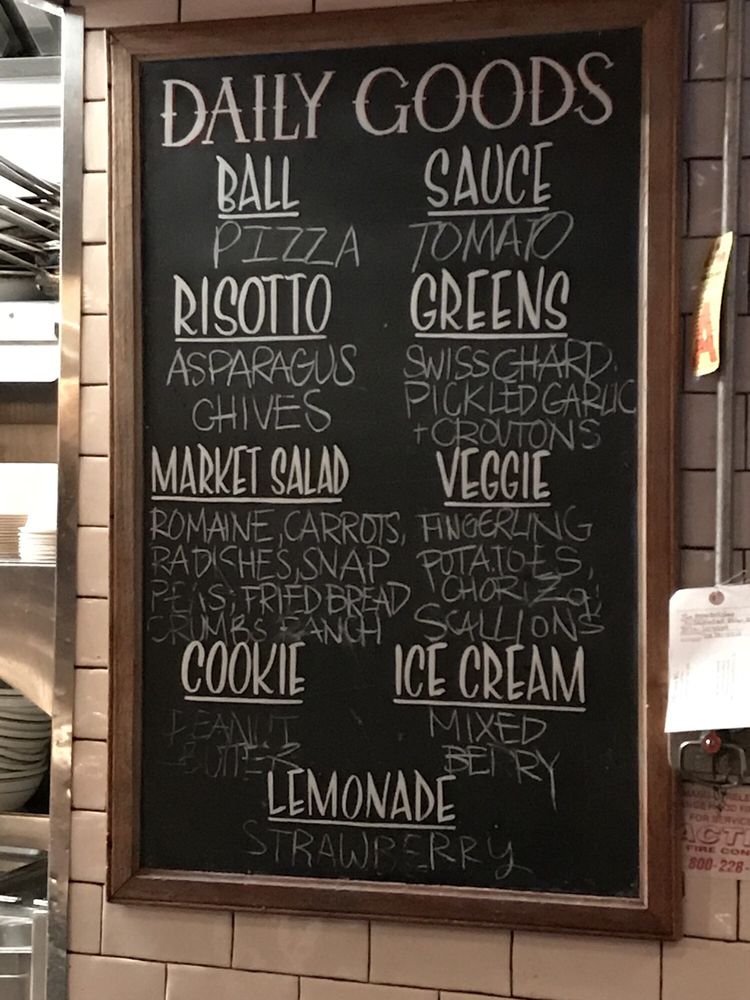 DAILY GOODS
BALL
PIZZA
SAUCE
TOMATO
RISOTTO
ASPARAGUS
CHIVES
GREENS
SWISS CHARD,
PICKLED GARLIC
+ CROUTONS
MARKET SALAD
ROMAINE, CARROTS,
RADISHES, SNAP
PEAS, FRIED BREAD
CRUMBS, RANCH
VEGGIE
FINGERLING
POTATOES,
CHORIZO,
SCALLIONS
COOKIE
PEANUT
BUTTER
ICE CREAM
MIXED
BERRY
LEMONADE
STRAWBERRY
FOR SERVICE
ACTI
FIRE CON
800-228-